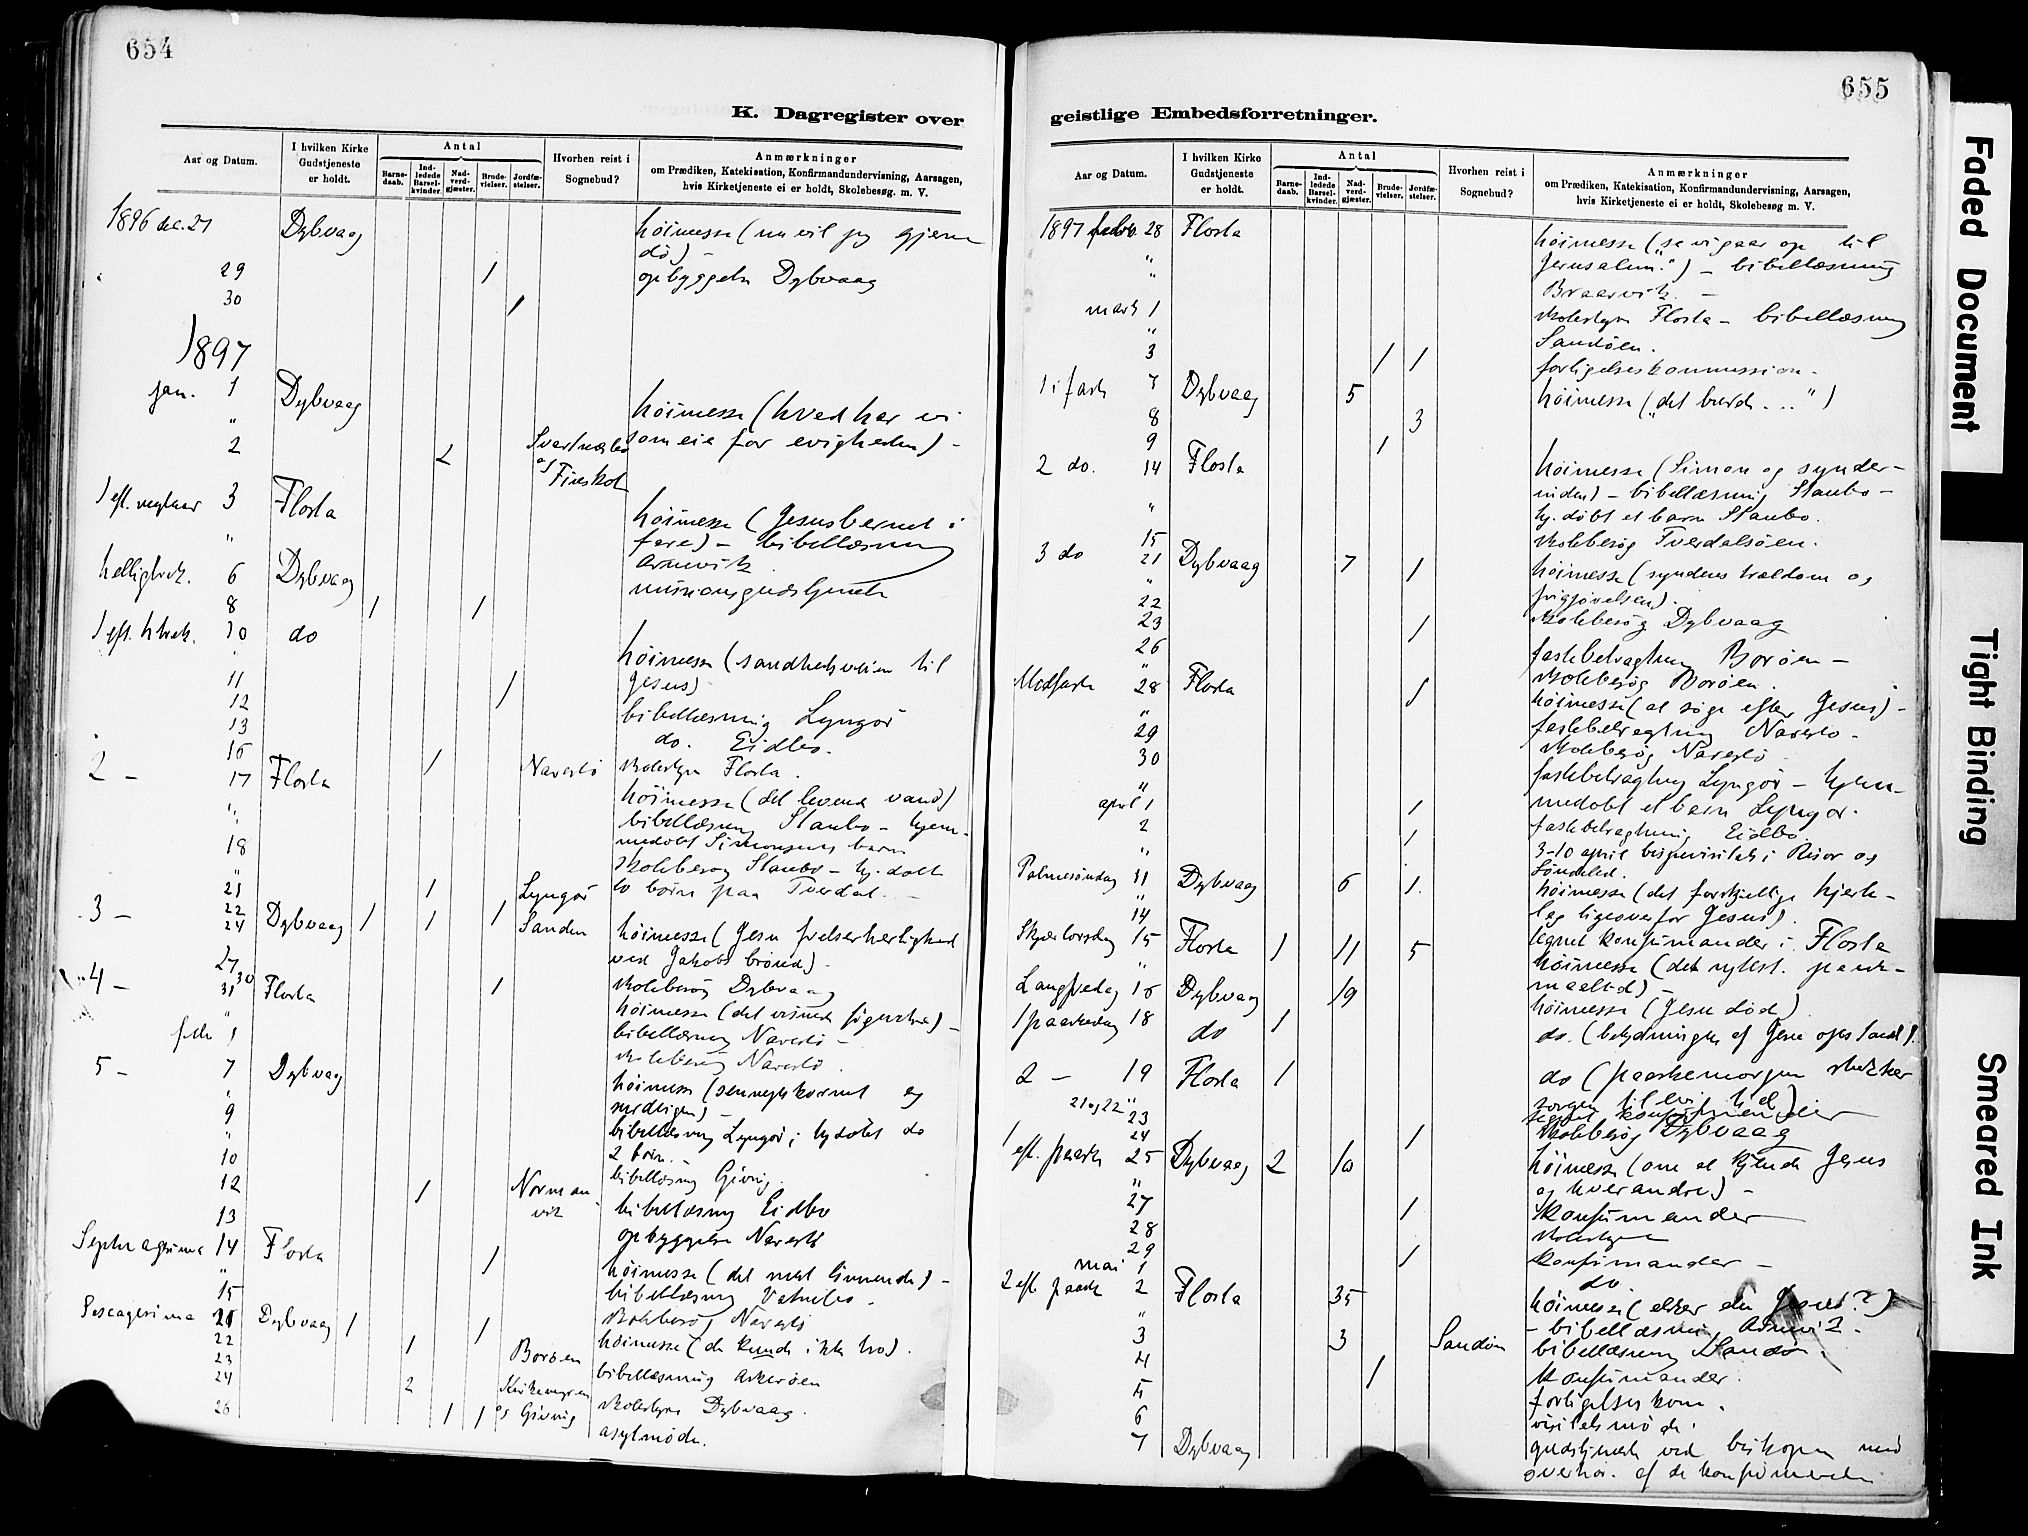 654
K. Dagregister over
Aar og Datum.
I hvilken Kirke Gudstjeneste er holdt.
Antal
Barne-daab.
Ind-ledede Barsel-kvinder.
Nad-verd-gjæster.
Brude-vielser.
Jordfæ-stelser.
Hvorhen reist i Sognebud?
Anmærkninger
om Prædiken, Katekisation, Konfirmandundervisning, Aarsagen,
hvis Kirketjeneste ei er holdt, Skolebesøg. m. V.
1896 dec. 27 Dybvaag høimesse (nu vil jeg gjerne
dø) -
29 1 opbyggelse Dybvaag
30 1
1897
jan. 1 Dybvaag høimesse (hvad har vi
som eie for evigheden) -
" 2 2
1 eft. nytaar 3 Flosta høimesse (Jesusbarnet i
fare) - bibellæsning
" Arnevik
helligtrek. 6 Dybvaag missionsgudstjeneste
8 1 1
1 eft. h trek. 10 do høimesse (sandhets veien til
Jesus)
11 1
12 bibellæsning Lyngør
13 do. Eidbo.
16 1 Navestø skolestyre Flosta.
2 - 17 Flosta høimesse (det levende vand)
" bibellæsning Staubo - hjem-
medøbt Simonsens barn
18 skolebesøg Staubo - hj. døbt
to børn paa Tverdal. -
21 1 Lyngør
22 1
3 - 24 Dybvaag 1 1 Sanden høimesse (Jesu frelserherlighed
ved Jakobs brønd) -
27 skolebesøg Dybvaag
30 1
4 - 31 Flosta høimesse (det visnede figentræ) -
" bibellæsning Navestø -
feb 1 skolebesøg Navestø.
5 - 7 Dybvaag høimesse (sennepskornet og
surdeigen) -
9 bibellæsning Lyngør; hj døbt do
2 børn.
10 bibellæsning Giving.
12 1 Norman
vik bibellæsning Eidbo
13 opbyggelse Navestø
Septuagesima 14 Flosta 1 høimesse (det mest lignende) -
" bibellæsning Vatnebo.
15 skolebesøg Navestø
Sexagesima 21 Dybvaag 1 1 høimesse (de kunde ikke tro).
22 1 Borøen
23 bibellæsning Askerøen
24 2 skolestyre Dybvaag.
26 1 1 og Giving asylmøde.
655
geistlige Embedsforretninger.
Aar og Datum.
I hvilken Kirke Gudstjeneste er holdt.
Antal
Barne-daab.
Ind-ledede Barsel-kvinder.
Nad-verd-gjæster.
Brude-vielser.
Jordfæ-stelser.
Hvorhen reist i Sognebud?
Anmærkninger
om Prædiken, Katekisation, Konfirmandundervisning, Aarsagen,
hvis Kirketjeneste ei er holdt, Skolebesøg m. V.
1897 febr. 28 Flosta høimesse (se vi gaar op til
" Jerusalem") - bibellæsning
" Braarvik. -
mars 1 skolestyre Flosta - bibellæsning
" Sandøen.
3 1 1 forligelseskommission.
1 i faste 7 Dybvaag 5 høimesse ("det burde ...")
8 3
9 1
2 do. 14 Flosta høimesse (Simon og synder-
inden) - bibellæsning Staubo -
" hj. døbt et barn Staubo.
15 skolebesøg Tverdalsøen.
3 do 21 Dybvaag 7 1 høimesse (syndens trældom og
" frigjørelsen).
22 skolebesøg Dybvaag
23 1
26 fastebetragtning Borøen -
" skolebesøg Borøen.
Midfaste 28 Flosta 1 høimesse (at søge efter Jesus) -
" fastebetragtning Navestø -
29 skolebesøg Navestø
30 fastebetragtning Lyngør - hjem-
" medøbt et barn Lyngør.
april 1 1 fastebetragtning Eidbo
2 1 3-10 april bispevisitats i Risør og
" Søndeled.
Palmesøndag 11 Dybvaag 6 1 høimesse (det forskjellige hjerte-
" lag ligeoverfor Jesus).
14 tegnet konfirmander i Flosta
Skjærtorsdag 15 Flosta 1 11 5 høimesse (det nytest. paaske-
" maaltid) -
Langfredag 16 Dybvaag 19 høimesse (Jesu død)
1 paaskedag 18 do 1 do. (betydningen af Jesu opstand).
2 - 19 Flosta 1 do (paaskemorgen slukker
sorgen til evig tid)
21 og 22 " tegnet konfirmander
23 skolebesøg Dybvaag
24 1
1 eft. paaske 25 Dybvaag 2 10 høimesse (om at kjende Jesus
" og hverandre) -
27 1 konfirmander
28 skolestyre
29 1 konfirmander -
mai 1 do
2 eft. paaske 2 Flosta 35 høimesse (elsker du Jesus?)
" - bibellæsning Arnevik.
3 3 Sandøen bibellæsning Sandøen.
4 1 konfirmander.
5 forligelses kom.
6 visitatsmøde.
7 Dybvaag gudstjeneste ved biskopen med
overhør. af de konfirmerede
Faded Document
Tight Binding
Smeared Ink